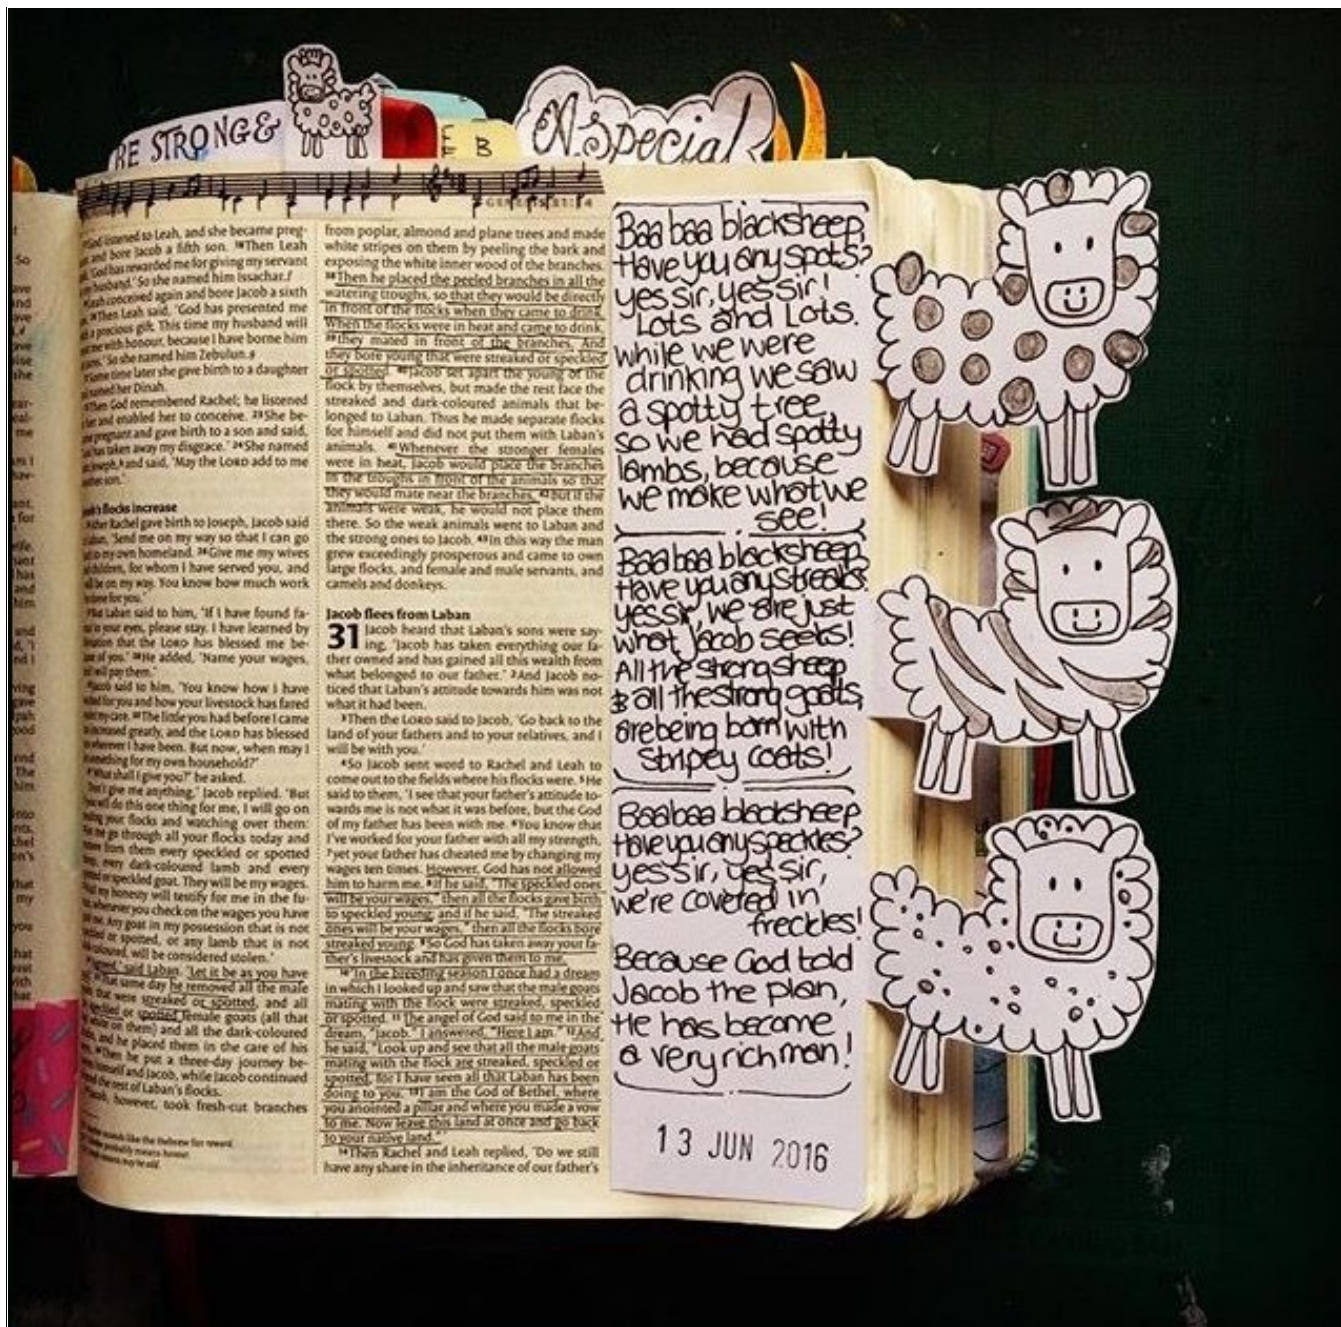 BE STRONG&
B
A special
GENESIS 31:14
God listened to Leah, and she became preg-
and bore Jacob a fifth son. 18Then Leah
'God has rewarded me for giving my servant
husband.' So she named him Issachar.f
Leah conceived again and bore Jacob a sixth
20Then Leah said, 'God has presented me
a precious gift. This time my husband will
me with honour, because I have borne him
sons.' So she named him Zebulun.g
Some time later she gave birth to a daughter
named her Dinah.
Then God remembered Rachel; he listened
her and enabled her to conceive. 23She be-
pregnant and gave birth to a son and said,
has taken away my disgrace.' 24She named
Joseph,h and said, 'May the LORD add to me
son.'
flocks increase
After Rachel gave birth to Joseph, Jacob said
Laban, 'Send me on my way so that I can go
to my own homeland. 26Give me my wives
children, for whom I have served you, and
be on my way. You know how much work
done for you.'
But Laban said to him, 'If I have found fa-
in your eyes, please stay. I have learned by
that the LORD has blessed me be-
of you.' 28He added, 'Name your wages,
will pay them.'
Jacob said to him, 'You know how I have
for you and how your livestock has fared
my care. 30The little you had before I came
increased greatly, and the LORD has blessed
wherever I have been. But now, when may I
something for my own household?'
'What shall I give you?' he asked.
'Don't give me anything,' Jacob replied. 'But
will do this one thing for me, I will go on
your flocks and watching over them:
me go through all your flocks today and
from them every speckled or spotted
every dark-coloured lamb and every
or speckled goat. They will be my wages.
my honesty will testify for me in the fu-
whenever you check on the wages you have
me. Any goat in my possession that is not
or spotted, or any lamb that is not
coloured, will be considered stolen.'
said Laban. 'Let it be as you have
That same day he removed all the male
that were streaked or spotted, and all
speckled or spotted female goats (all that
white on them) and all the dark-coloured
and he placed them in the care of his
Then he put a three-day journey be-
himself and Jacob, while Jacob continued
the rest of Laban's flocks.
Jacob, however, took fresh-cut branches
sounds like the Hebrew for reward.
probably means honour.
means may he add.
from poplar, almond and plane trees and made
white stripes on them by peeling the bark and
exposing the white inner wood of the branches.
38Then he placed the peeled branches in all the
watering troughs, so that they would be directly
in front of the flocks when they came to drink.
When the flocks were in heat and came to drink,
39they mated in front of the branches. And
they bore young that were streaked or speckled
or spotted. 40Jacob set apart the young of the
flock by themselves, but made the rest face the
streaked and dark-coloured animals that be-
longed to Laban. Thus he made separate flocks
for himself and did not put them with Laban's
animals. 41Whenever the stronger females
were in heat, Jacob would place the branches
in the troughs in front of the animals so that
they would mate near the branches, 42but if the
animals were weak, he would not place them
there. So the weak animals went to Laban and
the strong ones to Jacob. 43In this way the man
grew exceedingly prosperous and came to own
large flocks, and female and male servants, and
camels and donkeys.
Jacob flees from Laban
31 Jacob heard that Laban's sons were say-
ing, 'Jacob has taken everything our fa-
ther owned and has gained all this wealth from
what belonged to our father.' 2And Jacob no-
ticed that Laban's attitude towards him was not
what it had been.
3Then the LORD said to Jacob, 'Go back to the
land of your fathers and to your relatives, and I
will be with you.'
4So Jacob sent word to Rachel and Leah to
come out to the fields where his flocks were. 5He
said to them, 'I see that your father's attitude to-
wards me is not what it was before, but the God
of my father has been with me. 6You know that
I've worked for your father with all my strength,
7yet your father has cheated me by changing my
wages ten times. However, God has not allowed
him to harm me. 8If he said, "The speckled ones
will be your wages," then all the flocks gave birth
to speckled young; and if he said, "The streaked
ones will be your wages," then all the flocks bore
streaked young. 9So God has taken away your fa-
ther's livestock and has given them to me.
10'In the breeding season I once had a dream
in which I looked up and saw that the male goats
mating with the flock were streaked, speckled
or spotted. 11The angel of God said to me in the
dream, "Jacob." I answered, "Here I am." 12And
he said, "Look up and see that all the male goats
mating with the flock are streaked, speckled or
spotted, for I have seen all that Laban has been
doing to you. 13I am the God of Bethel, where
you anointed a pillar and where you made a vow
to me. Now leave this land at once and go back
to your native land."'
14Then Rachel and Leah replied, 'Do we still
have any share in the inheritance of our father's
Baa baa blacksheep,
Have you any spots?
yes sir, yes sir!
Lots and Lots.
while we were
drinking we saw
a spotty tree,
so we had spotty
lambs, because
we make what we
see!
Baa baa blacksheep,
Have you any streaks?
yes sir, we are just
what Jacob seeks!
All the strong sheep
& all the strong goats,
are being born with
stripey coats!
Baa baa blacksheep
Have you any speckles?
yes sir, yes sir,
we're covered in
freckles!
Because God told
Jacob the plan,
He has become
a very rich man!
13 JUN 2016